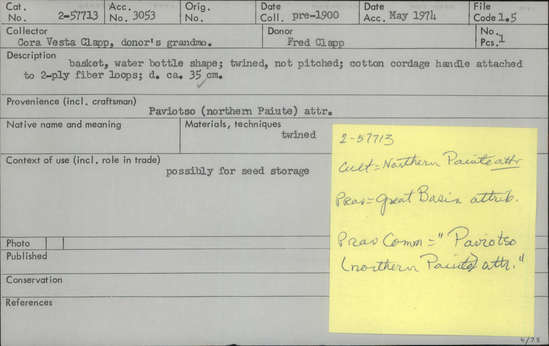 Cat. No. 2-57713 Acc. No. 3053 Orig. No. Date Coll. pre-1900 Date Acc. May 1974 File Code 1.5
Collector Cora Vesta Clapp, donor's grandmo. Donor Fred Clapp No. Pcs. 1
Description basket, water bottle shape; twined, not pitched; cotton cordage handle attached
to 2-ply fiber loops; d. ca. 35 cm.
Provenience (incl. craftsman)
Paviotso (northern Paiute) attr.
Native name and meaning Materials, techniques
twined
Context of use (incl. role in trade)
possibly for seed storage
Photo
Published
Conservation
References
2-57713
Cult = Northern Paiute attr
Prov = Great Basin attrib.
Prov Comm = "Paviotso
(northern Paiute) attr."
4/73